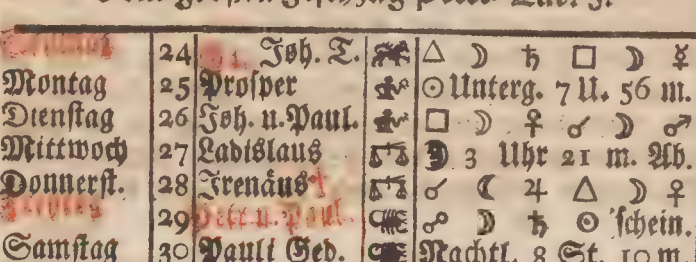 24 Joh. T. △ ☽ ♄ □ ☽ ☿
Montag 25 Prosper ☉ Unterg. 7 U. 56 m.
Dienstag 26 Joh. u. Paul. □ ☽ ♀ ☌ ☽ ♂
Mittwoch 27 Ladislaus ☽ 3 Uhr 21 m. Ab.
Donnerst. 28 Irenäus ☌ ☾ ♃ △ ☽ ♀
29 Petr. u. Paul. ☍ ☽ ♄ ☉ schein.
Samstag 30 Pauli Ged. Nachtl. 8 St. 10 m.